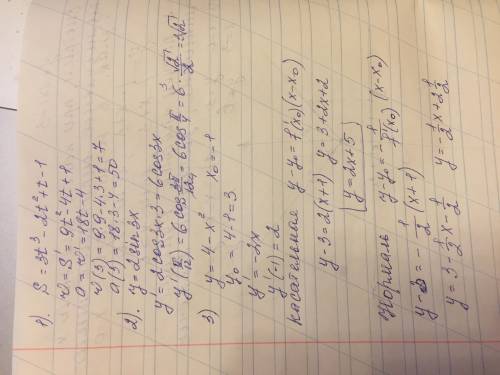 1). S = 3t³ - 2t² + t - 1
v = S' = 9t² - 4t + 1
a = v' = 18t - 4
v(3) = 9·9 - 4·3 + 1 = 7
a(3) = 18·3 - 4 = 50
2). y = 2 sin 3x
y' = 2 cos 3x · 3 = 6 cos 3x
y'(π/12) = 6 cos 3π/12 = 6 cos π/4 = 6 · √2/2 = 3√2
3) y = 4 - x² x₀ = -1
y₀ = 4 - 1 = 3
y' = -2x
y'(-1) = 2
касательная y - y₀ = f'(x₀)(x - x₀)
y - 3 = 2(x + 1) y = 3 + 2x + 2
y = 2x + 5
Нормаль y - y₀ = - 1/f'(x₀) (x - x₀)
y - 3 = - 1/2 (x + 1)
y = 3 - 1/2 x - 1/2 y = - 1/2 x + 2 1/2